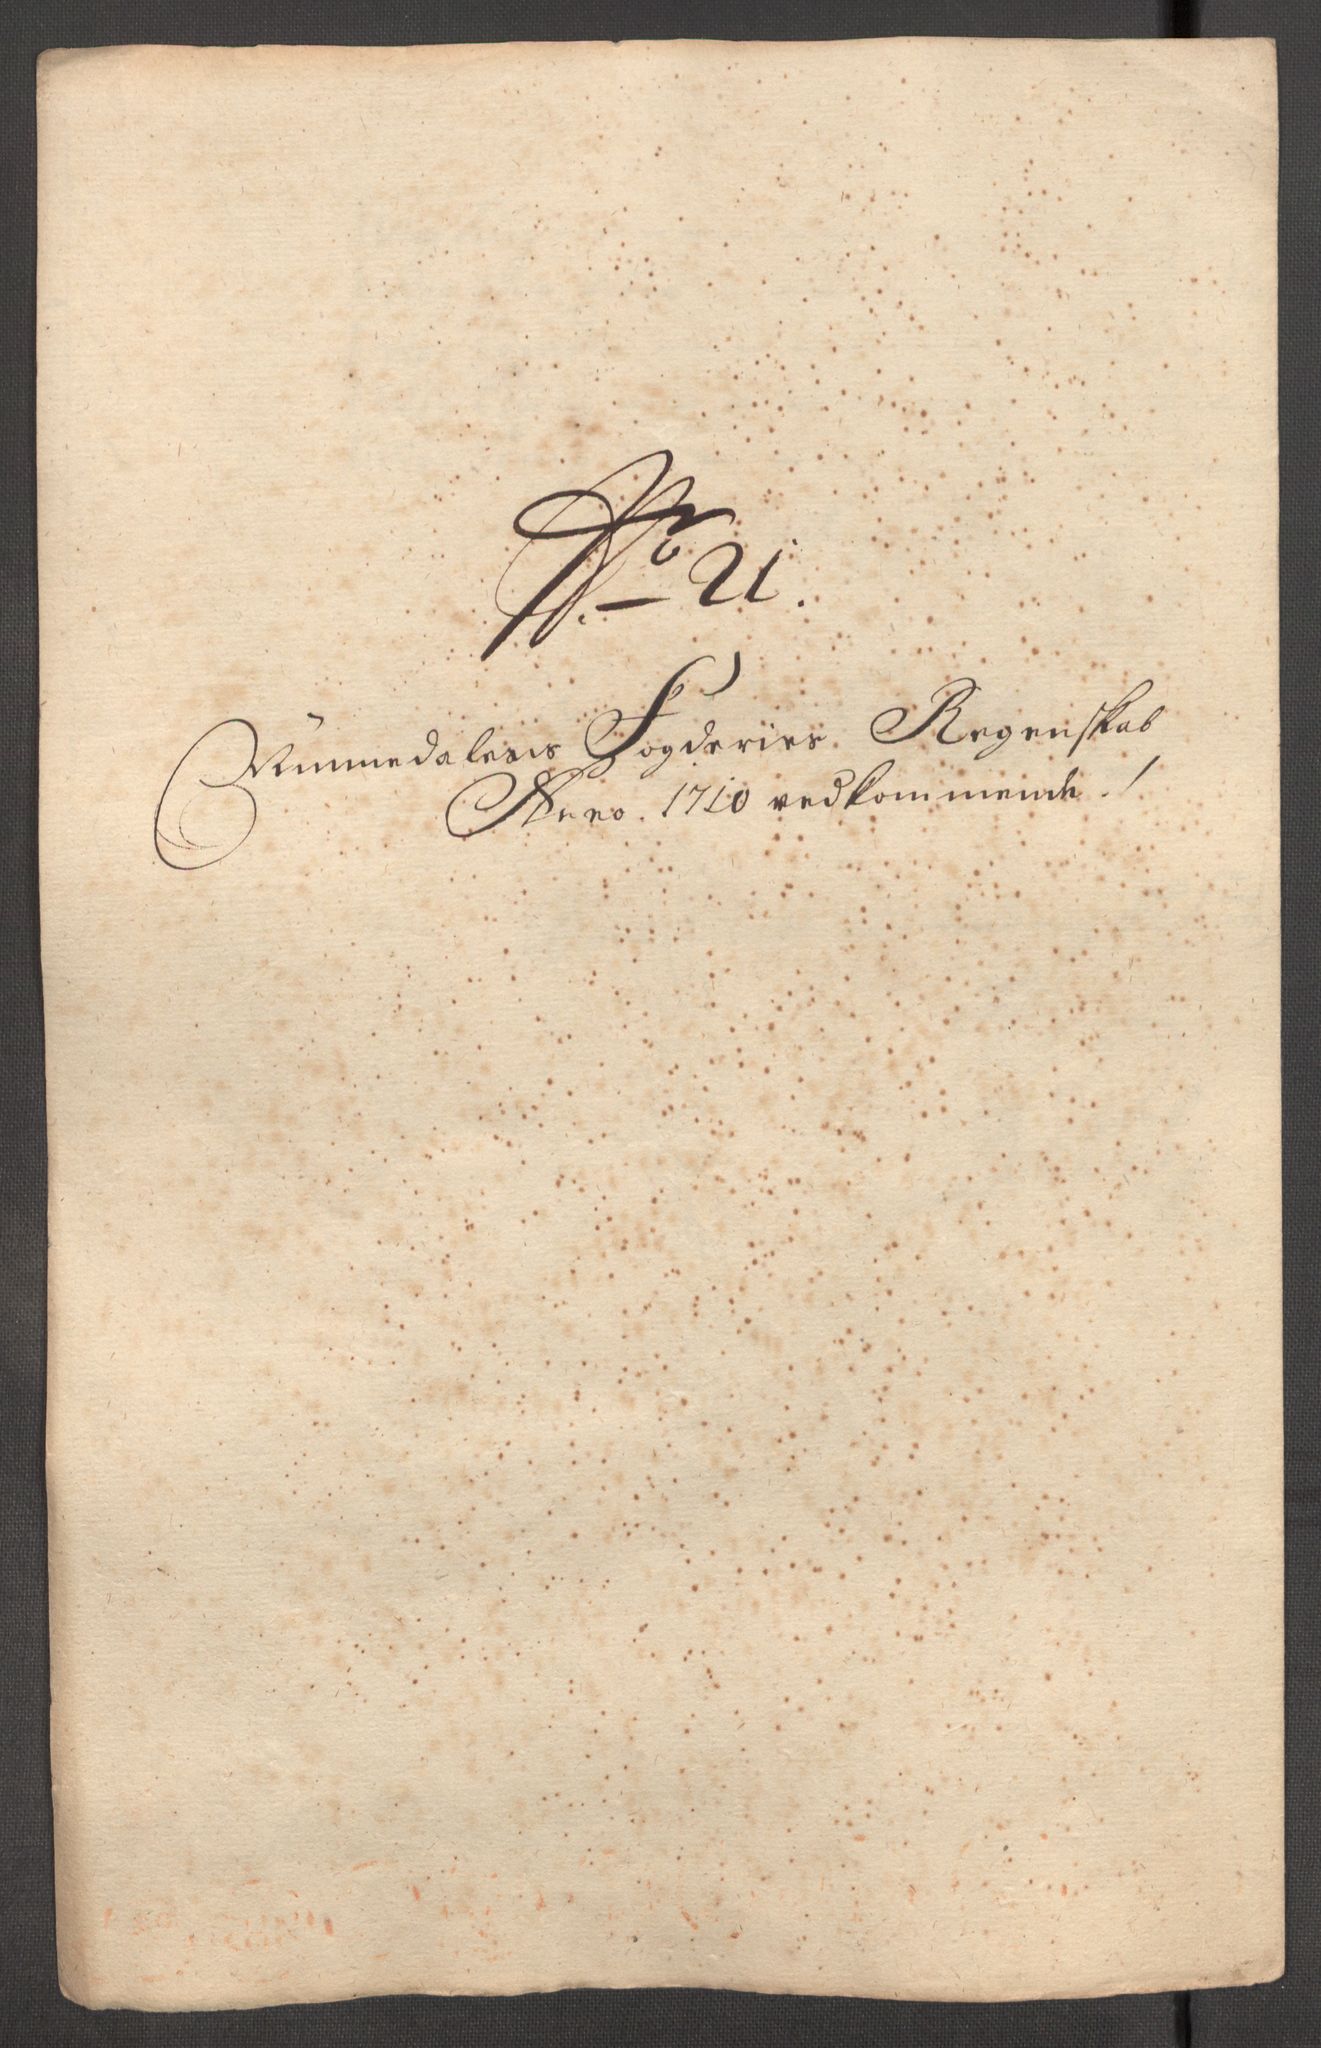 No 21.
Nummedalens Fogderies Regenskab
Anno. 1710 vedkommende. /